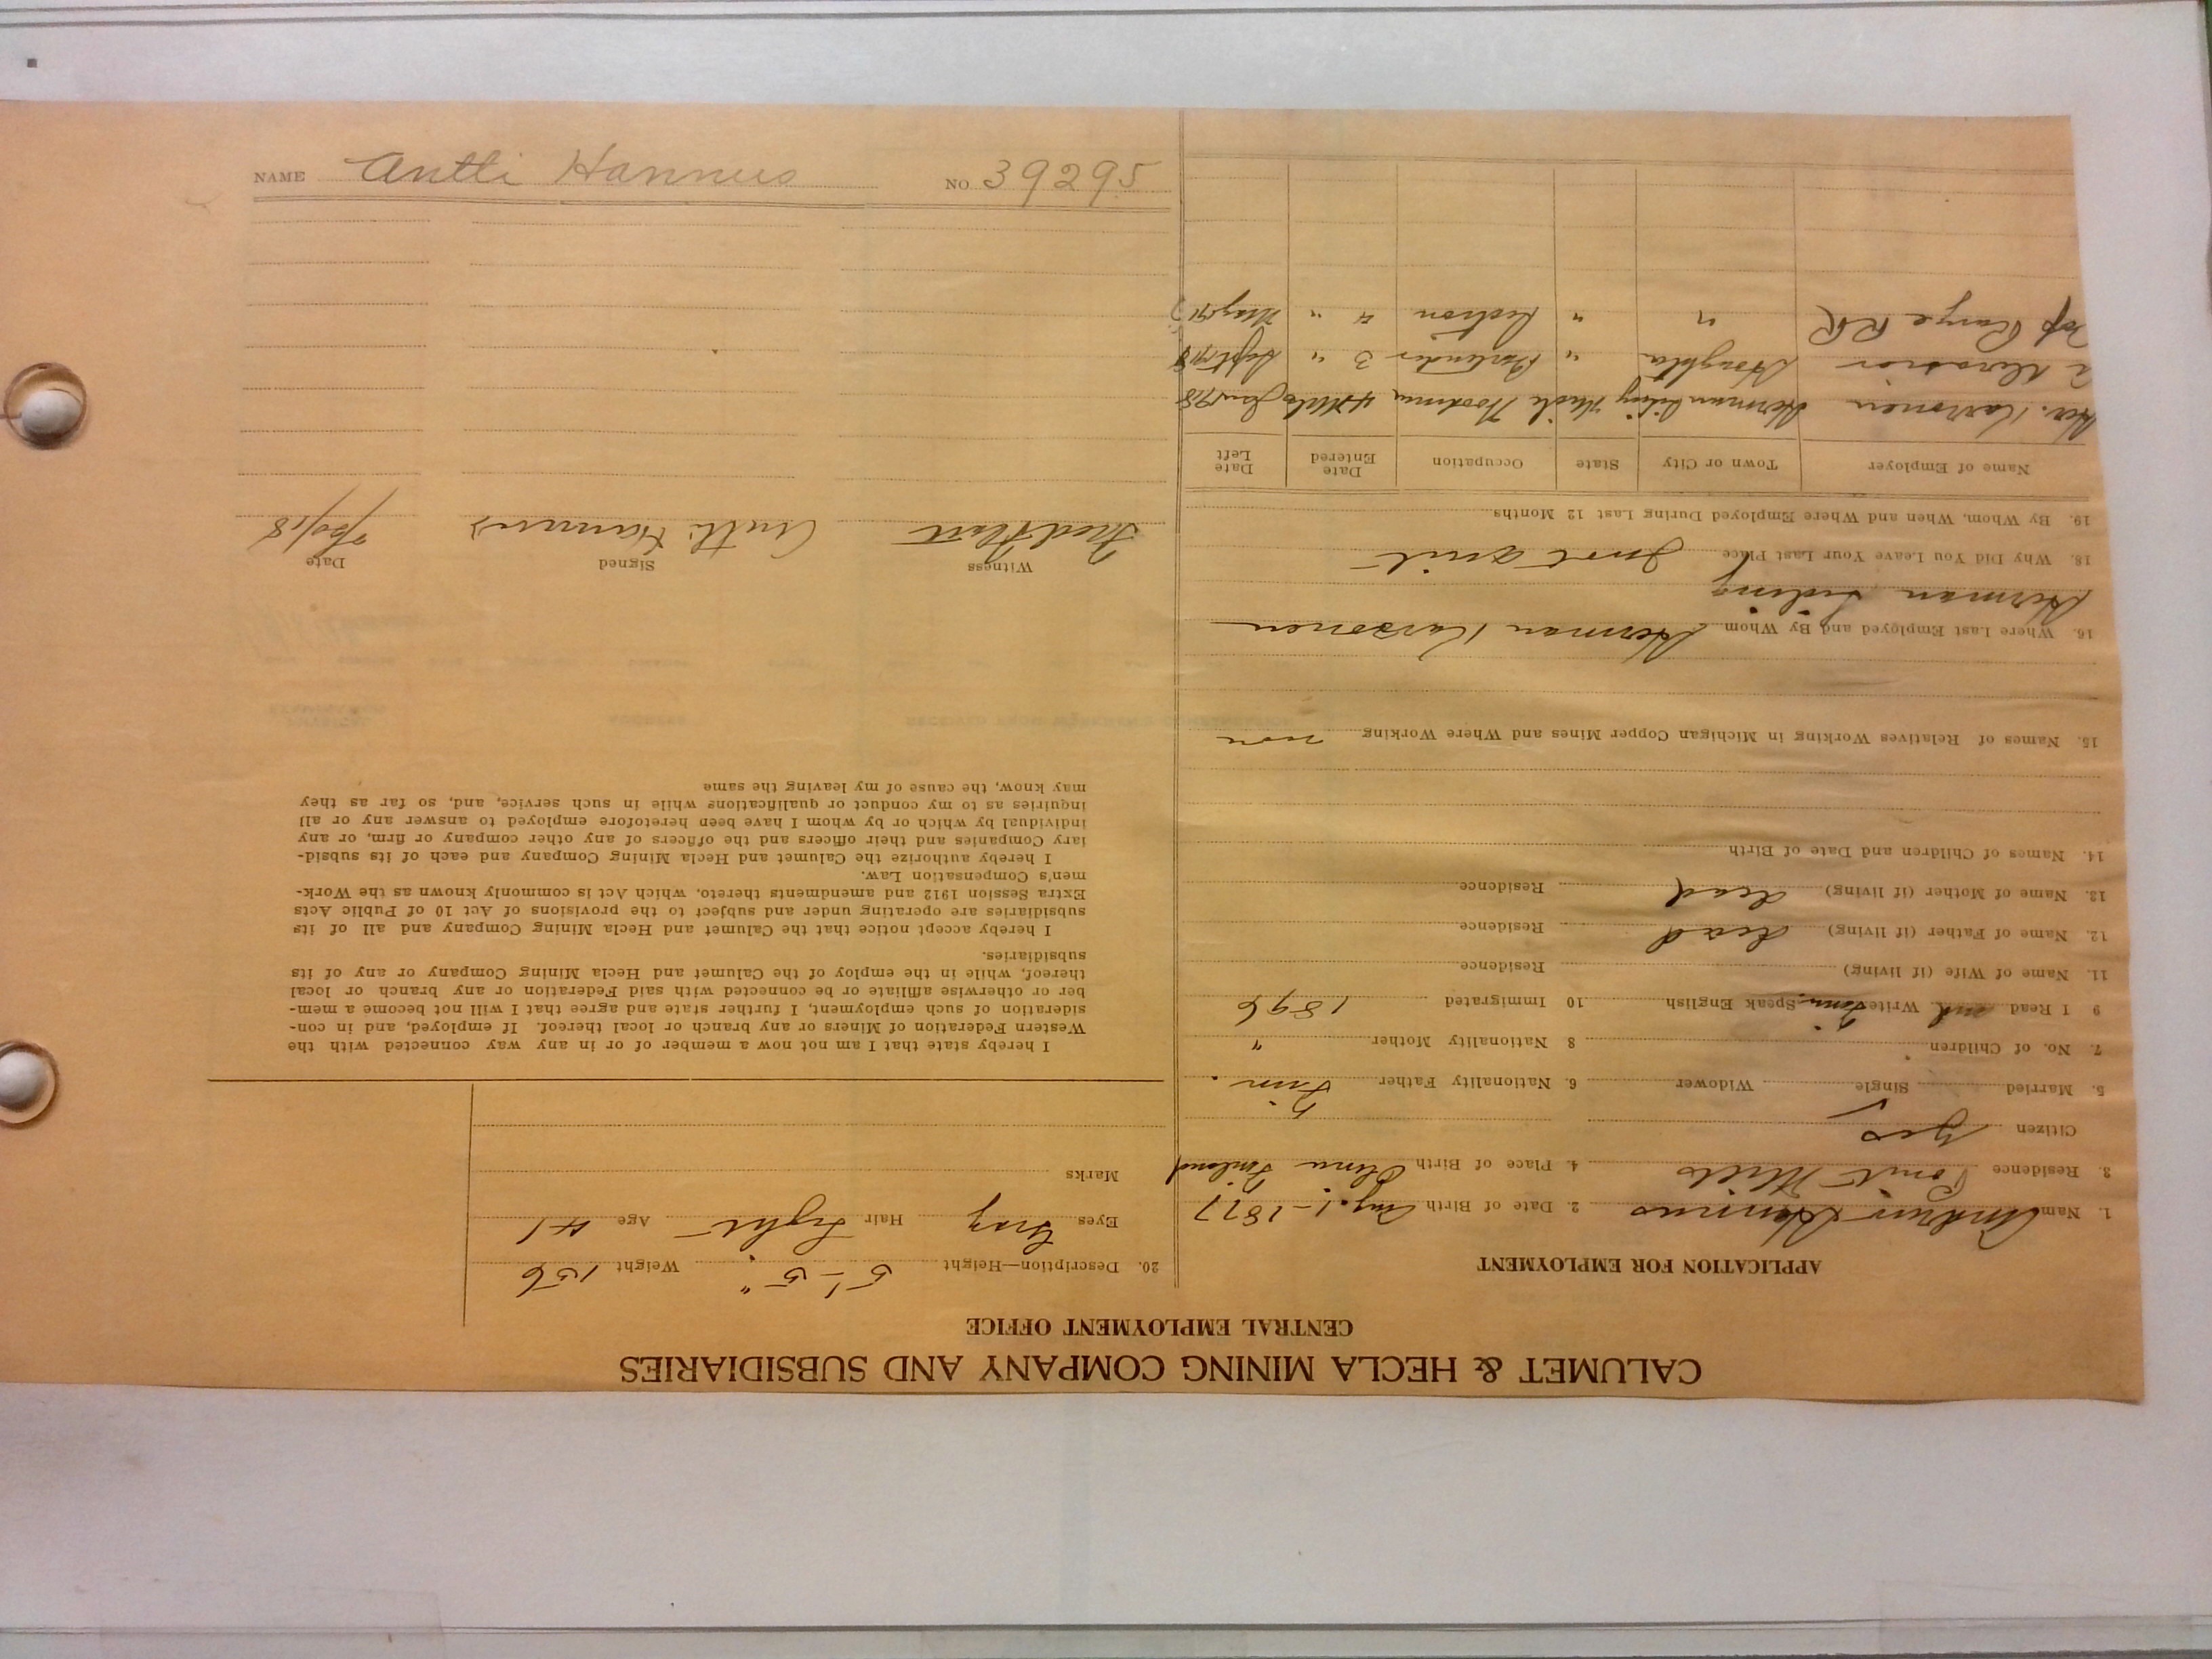 CALUMET & HECLA MINING COMPANY AND SUBSIDIARIES
CENTRAL EMPLOYMENT OFFICE
APPLICATION FOR EMPLOYMENT
1. Name Andrew Hannus 2. Date of Birth Aug. 1-1877
3. Residence Point Mills 4. Place of Birth Finland
Citizen Yes
5. Married Single Widower 6. Nationality Father Finn.
7. No. of Children 8 Nationality Mother "
9 I Read and Write Finn. Speak English 10 Immigrated 1896
11. Name of Wife (if living) Residence
12. Name of Father (if living) dead Residence
13. Name of Mother (if living) dead Residence
14. Names of Children and Date of Birth
15. Names of Relatives Working in Michigan Copper Mines and Where Working non
16. Where Last Employed and By Whom Herman Karsonen
Herman Siding
18. Why Did You Leave Your Last Place Just quit
19. By Whom, When and Where Employed During Last 12 Months
Name of Employer Town or City State Occupation Date Entered Date Left
Her. Karsonen Herman Siding Mich 4 Jan 1918
Houghton " Bartender 3 " Sept 1918
Cop Range RR " " Section 4 " May 191
20. Description—Height 5'-5" Weight 156
Eyes Gray Hair Light Age 41
Marks
I hereby state that I am not now a member of or in any way connected with the
Western Federation of Miners or any branch or local thereof. If employed, and in con-
sideration of such employment, I further state and agree that I will not become a mem-
ber or otherwise affiliate or be connected with said Federation or any branch or local
thereof, while in the employ of the Calumet and Hecla Mining Company or any of its
subsidiaries.
I hereby accept notice that the Calumet and Hecla Mining Company and all of its
subsidiaries are operating under and subject to the provisions of Act 10 of Public Acts
Extra Session 1912 and amendments thereto, which Act is commonly known as the Work-
men's Compensation Law.
I hereby authorize the Calumet and Hecla Mining Company and each of its subsid-
iary Companies and their officers and the officers of any other company or firm, or any
individual by which or by whom I have been heretofore employed to answer any or all
inquiries as to my conduct or qualifications while in such service, and, so far as they
may know, the cause of my leaving the same
Witness Signed Date
Antti Hannus
NAME Antti Hannus NO. 39295